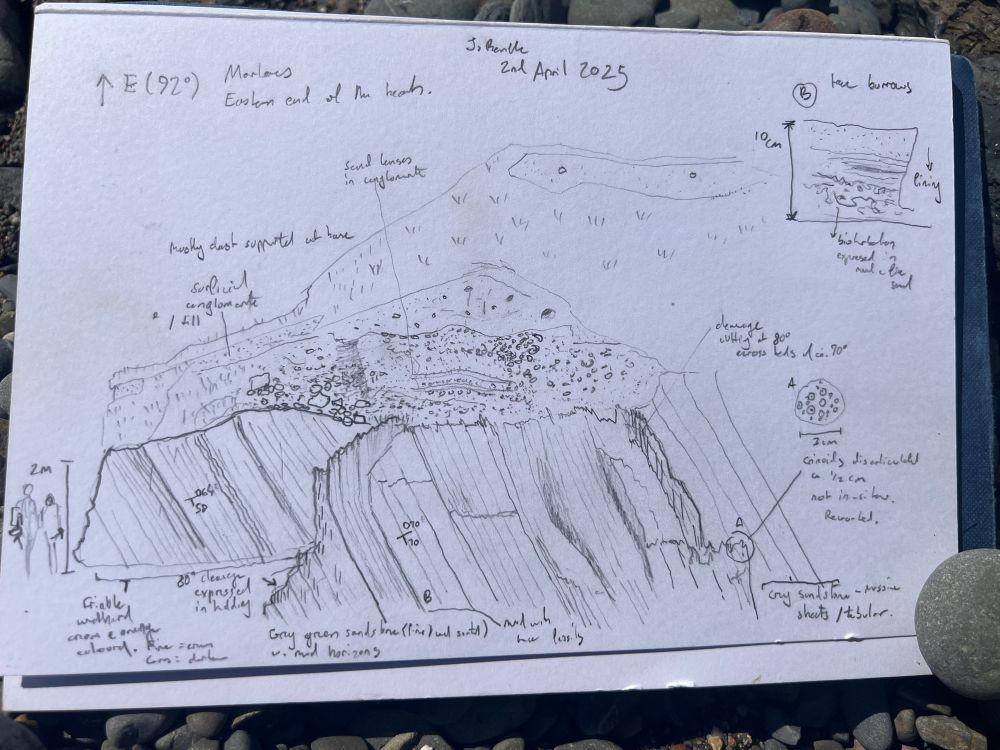 2nd April 2025
↑ E (92°)
Marloes
Eastern end of the beach.
B
trace burrows
10cm
fining
bioturbation
expressed in
mud & fine
sand
sand lenses
in conglomerate
Mostly clast supported at base
surficial
conglomerate
/ fill
cleavage
cutting at 80°
across beds of ca. 70°
A
2cm
crinoids disarticulated
ca 1/2 cm
not in-situ.
Reworked.
2m
064
58
070
70
A
B
80° cleavage
expressed
in bedding
Friable
weathered
cream & orange
coloured. Fine = cream
Grey green sandstone (fine) well sorted
w. mud horizons
mud with
trace fossils
Grey sandstone - massive
sheets / tabular.